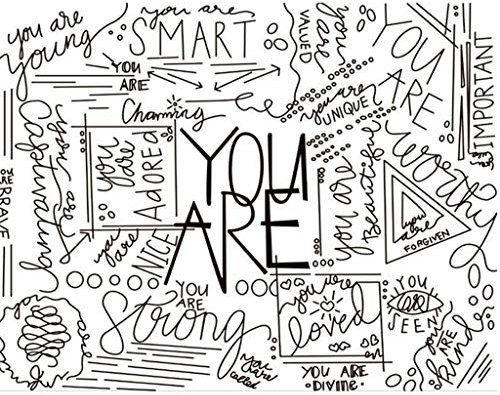 you are
young
you are
SMART
YOU
ARE
Charming
you are
VALUED
you
are
you are
UNIQUE
YOU
ARE
worthy
YOU ARE
IMPORTANT
YOU
ARE
BRAVE
you are
Captivating
you
are
ADORED
YOU
ARE
you are
Beautiful
you
are
FORGIVEN
you
are
NICE
YOU
ARE
Strong
you are
loved
YOU
are
SEEN
you
ARE
kind
you
are
you
are
called
YOU ARE
DIVINE.